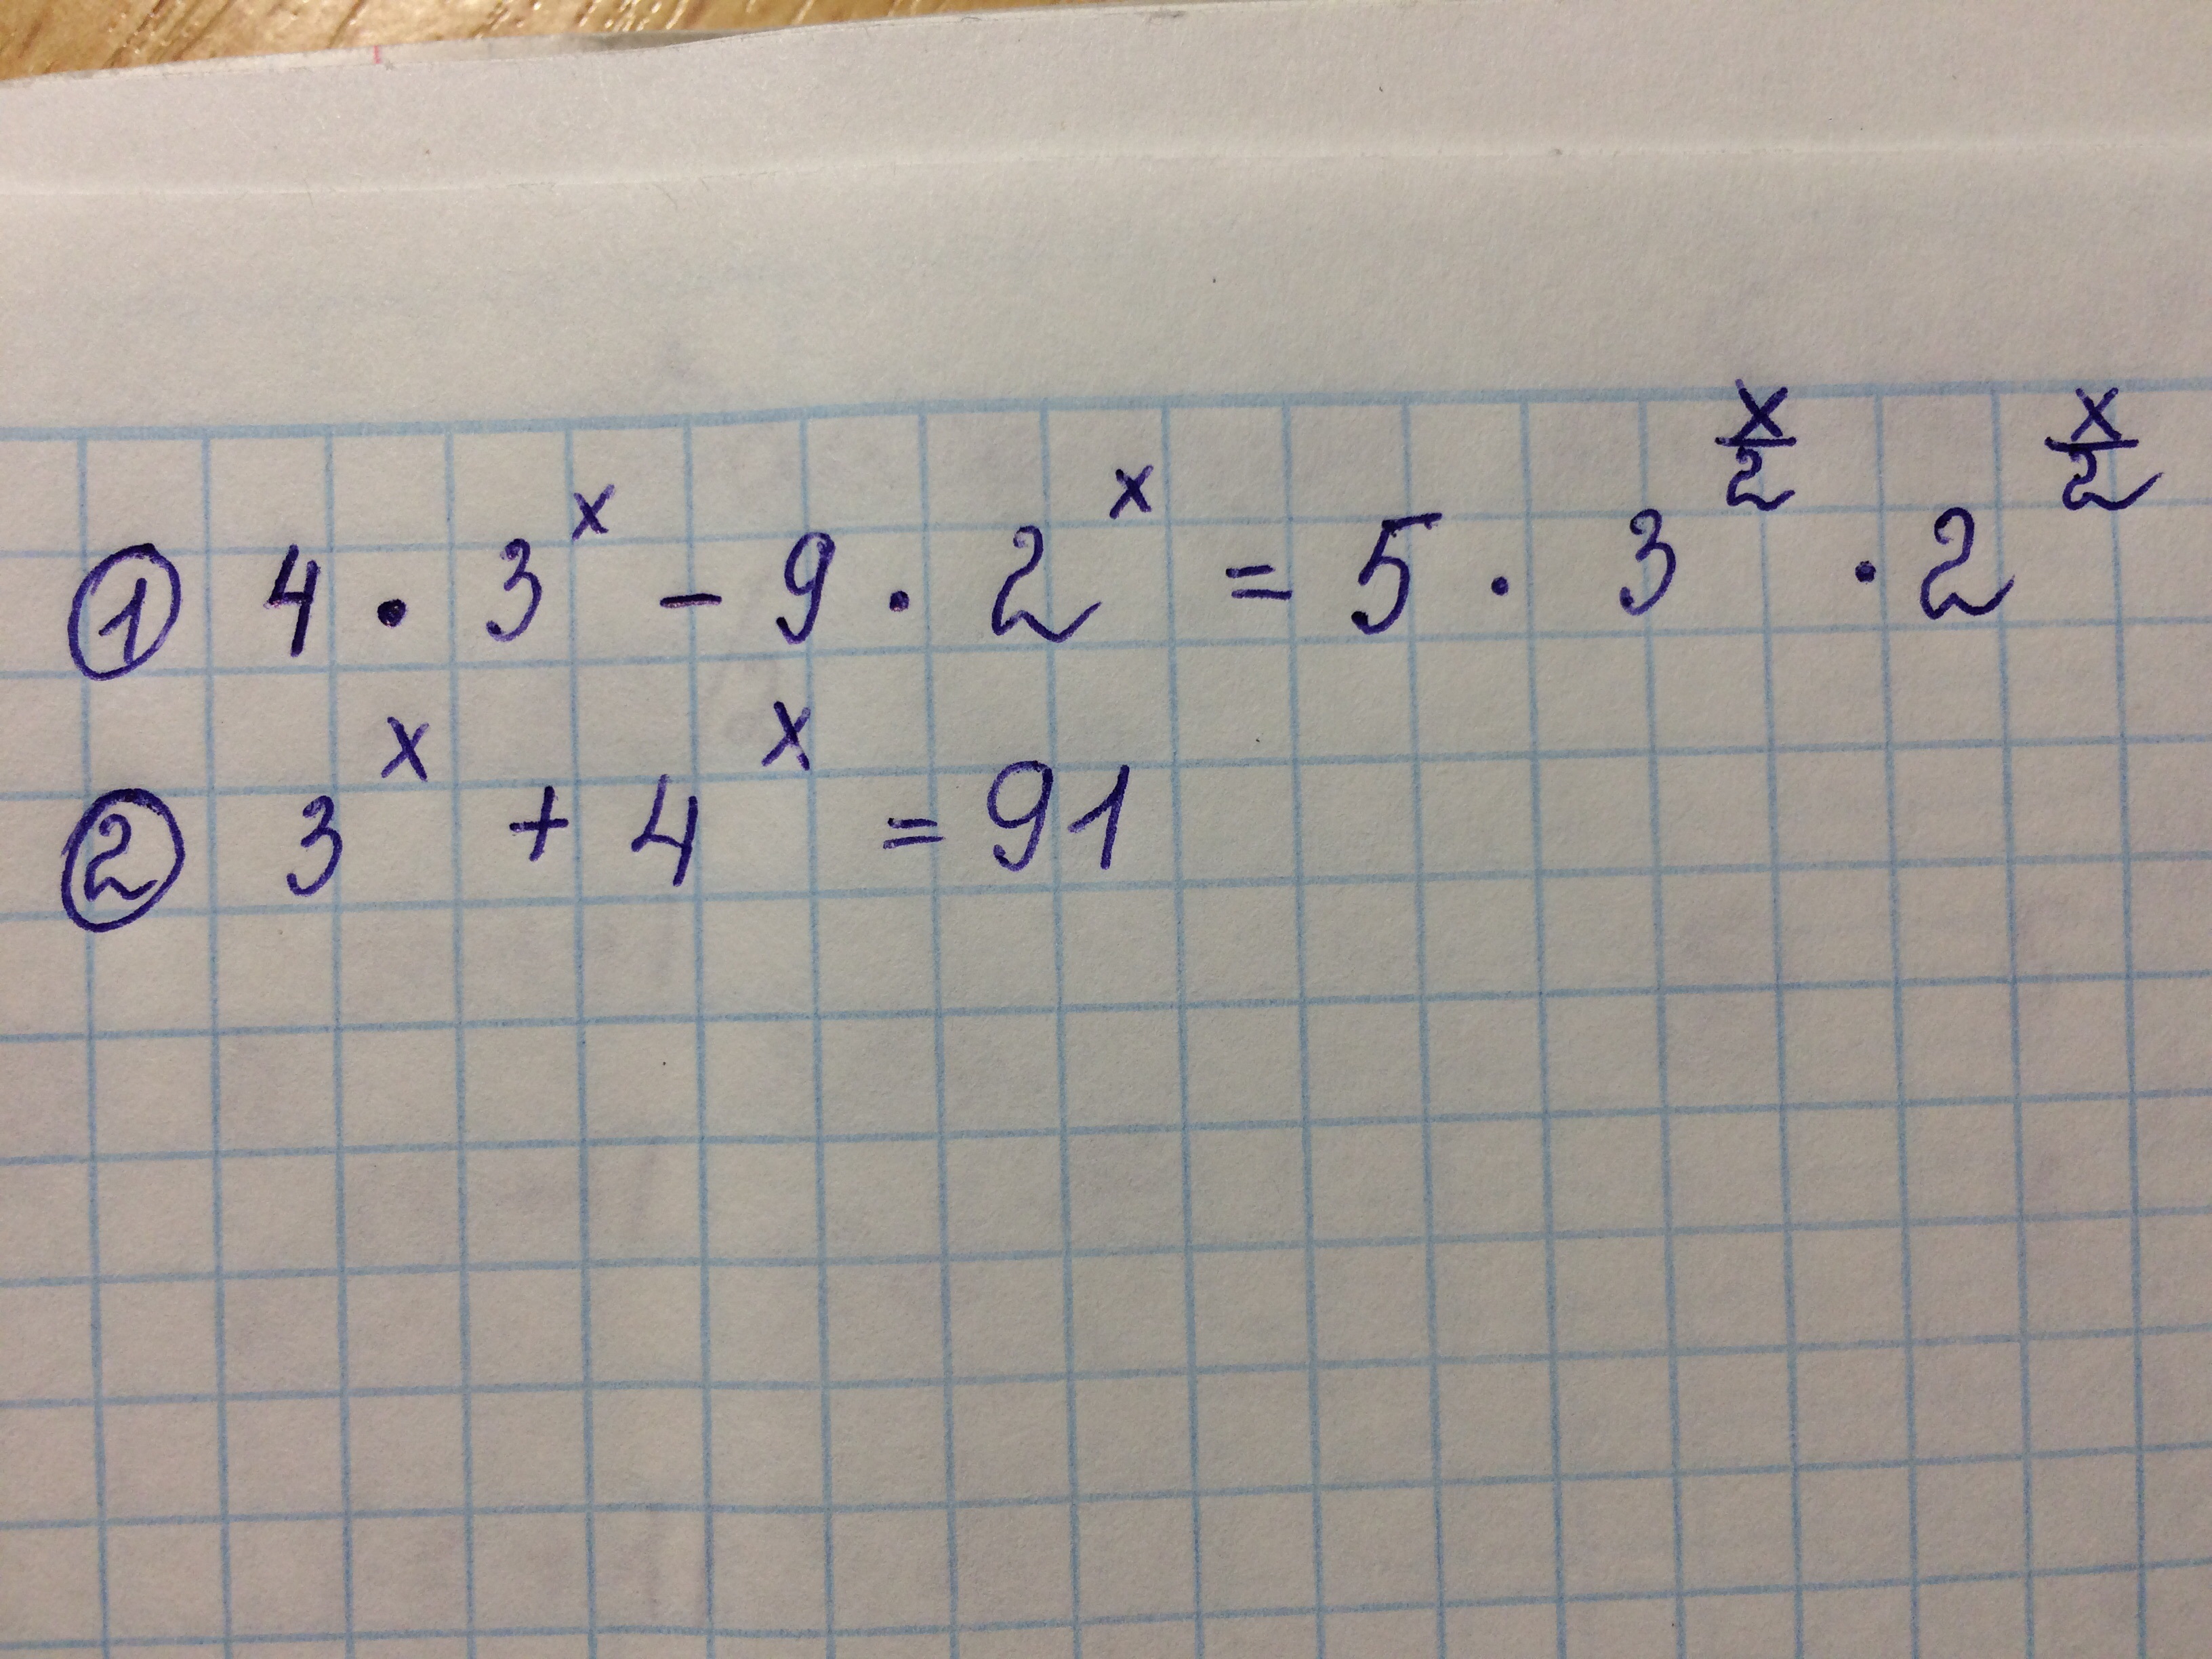 ① 4 · 3^x - 9 · 2^x = 5 · 3^(x/2) · 2^(x/2)
② 3^x + 4^x = 91